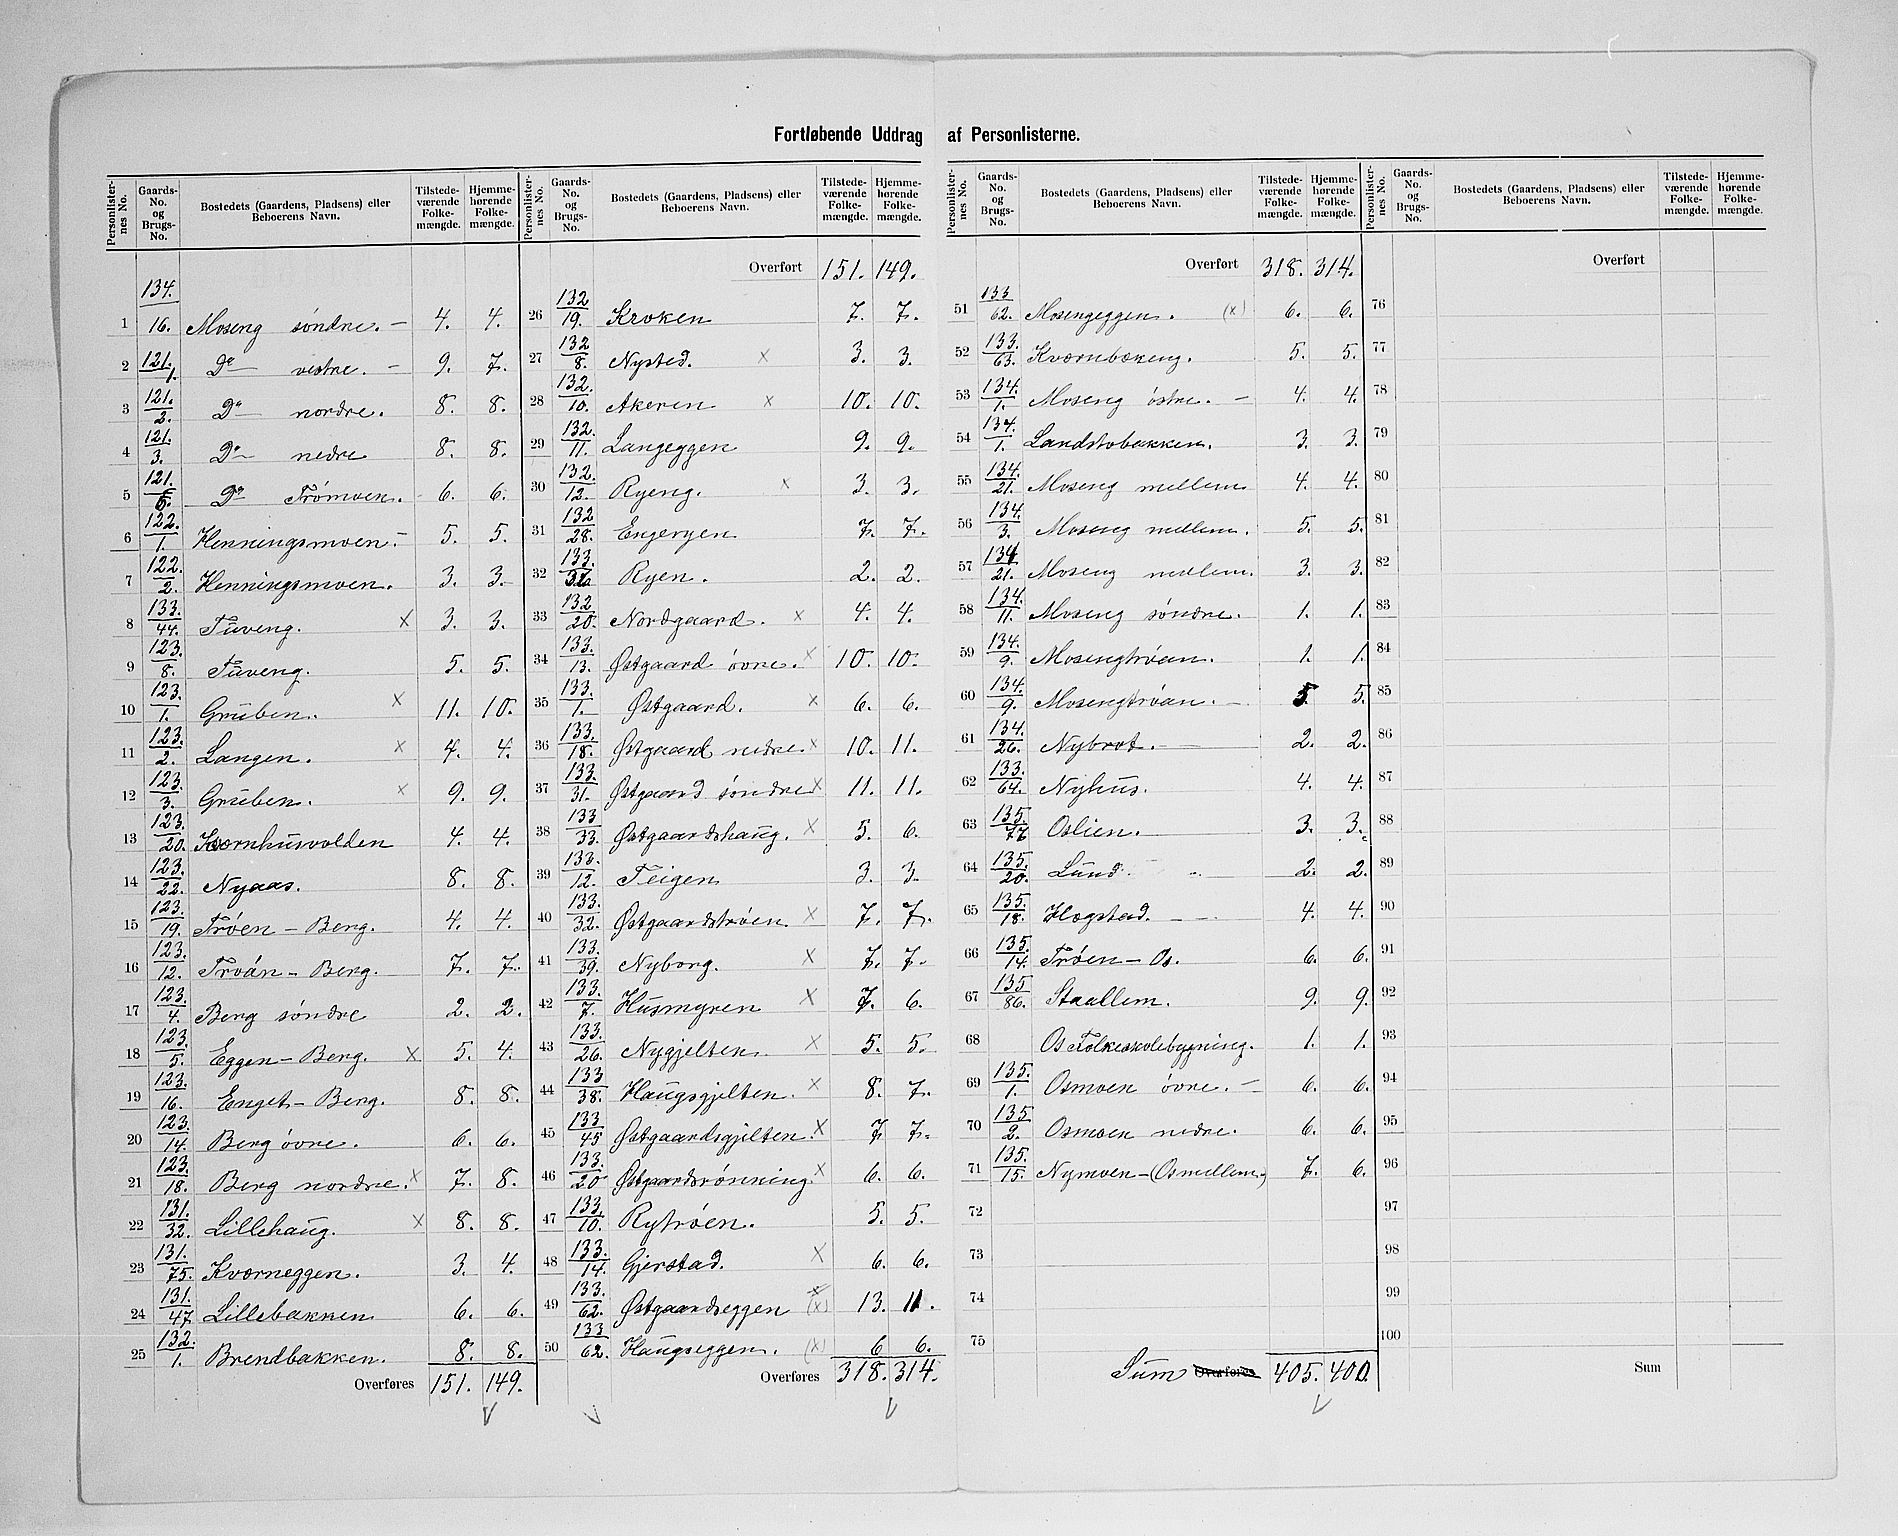 Fortløbende Uddrag af Personlisterne.
Personlisternes No. Gaards-No. og Brugs-No. Bostedets (Gaardens, Pladsens) eller Beboerens Navn. Tilstedeværende Folkemængde. Hjemmehørende Folkemængde.
1 134./16. Moseng søndre. — 4. 4.
2 121./1. Do vestre. — 9. 7.
3 121./2. Do nordre. 8. 8.
4 121./3. Do nedre 8. 8.
5 121./5. Do Trømoen. 6. 6.
6 122./1. Henningsmoen. — 5. 5.
7 122./2. Henningsmoen. 3. 3.
8 133./44. Tuveng. x 3. 3.
9 123./8. Tuveng. 5. 5.
10 123./1. Gruben. x 11. 10.
11 123./2. Langen. x 4. 4.
12 123./3. Gruben. x 9. 9.
13 123./20. Kvernhusvolden 4. 4.
14 123./22. Nyaas. 8. 8.
15 123./19. Trøen - Berg. 4. 4.
16 123./12. Troán - Berg. 7. 7.
17 123./4. Berg søndre 2. 2.
18 123./5. Eggen - Berg. x 5. 4.
19 123./16. Enget - Berg. 8. 8.
20 123./14. Berg øvre. 6. 6.
21 123./18. Berg nordre. x 7. 8.
22 131./32. Lillehaug. x 8. 8.
23 131./75. Kværneggen. 3. 4.
24 131./47 Lillebakken 6. 6.
25 132./1. Brendbakken. 8. 8.
Overføres 151. 149.
Personlisternes No. Gaards-No. og Brugs-No. Bostedets (Gaardens, Pladsens) eller Beboerens Navn. Tilstedeværende Folkemængde. Hjemmehørende Folkemængde.
Overført 151. 149.
26 132/19. Kroken 7. 7.
27 132/8. Nysted. x 3. 3.
28 132./10. Akeren x 10. 10.
29 132./11. Langeggen 9. 9.
30 132./12. Ryeng. x 3. 3.
31 132/28. Engeryen 7. 7.
32 133. Ryen. 2. 2.
33 132/20. Nordgaard. x 4. 4.
34 133./13. Østgaard øvre. x 10. 10.
35 133./1. Østgaard. x 6. 6.
36 133./18. Østgaard nedre. x 10. 11.
37 133./31. Østgaard søndre x 11. 11.
38 133/33. Østgaardshaug. x 5. 6.
39 133./12. Teigen 3. 3.
40 133./32. Østgaardstrøen x 7. 7.
41 133./39. Nyborg. x 7. 7.
42 133./7. Husmyren x 7. 6.
43 133./26. Nygjelten x 5. 5.
44 133/38. Haugsgjelten. x 8. 7.
45 133/45 Østgaardsgjelten. x 7 7.
46 133./20 Østgaardsrønning x 6. 6.
47 133./10. Rytrøen. 5. 5.
48 133./14. Gjerstad. x 6. 6.
49 133./62. Østgaardseggen (x) 13. 11.
50 133/62. Haugseggen. (x) 6 6.
Overføres 318. 314.
Personlisternes No. Gaards-No. og Brugs-No. Bostedets (Gaardens, Pladsens) eller Beboerens Navn. Tilstedeværende Folkemængde. Hjemmehørende Folkemængde.
Overført 318. 314.
51 133/62. Mosengeggen. (x) 6. 6.
52 133./63. Kværnbækeng. 5. 5.
53 134./1. Moseng østre. — 4. 4.
54 134./1. Landstobakken. 3. 3.
55 134./21. Moseng mellem 4. 4.
56 134./3. Moseng mellem. 5. 5.
57 134/21. Moseng mellem. 3. 3.
58 134./11. Moseng søndre. 1. 1.
59 134./9. Mosengtrøan. 1. 1.
60 134./9. Mosengtrøan. — 5. 5.
61 134./26. Nybrot. — 2. 2.
62 133./64. Nyhus. 4. 4.
63 135./77 Oslien. 3. 3.
64 135./20. Lund. 2. 2.
65 135./18. Hogstad. — 4. 4.
66 135./14. Trøen - Os. 6. 6.
67 135/86. Staallem. 9. 9.
68 Os Folkeskolebygning. 1. 1.
69 135./1. Osmoen øvre. — 6. 6.
70 135/2. Osmoen nedre. 6. 6.
71 135./15. Nymoen - (Osmellem) 7. 6.
72
73
74
75
Sum Overføres 405. 400.
Personlisternes No. Gaards-No. og Brugs-No. Bostedets (Gaardens, Pladsens) eller Beboerens Navn. Tilstedeværende Folkemængde. Hjemmehørende Folkemængde.
Overført
76
77
78
79
80
81
82
83
84
85
86
87
88
89
90
91
92
93
94
95
96
97
98
99
100
Sum